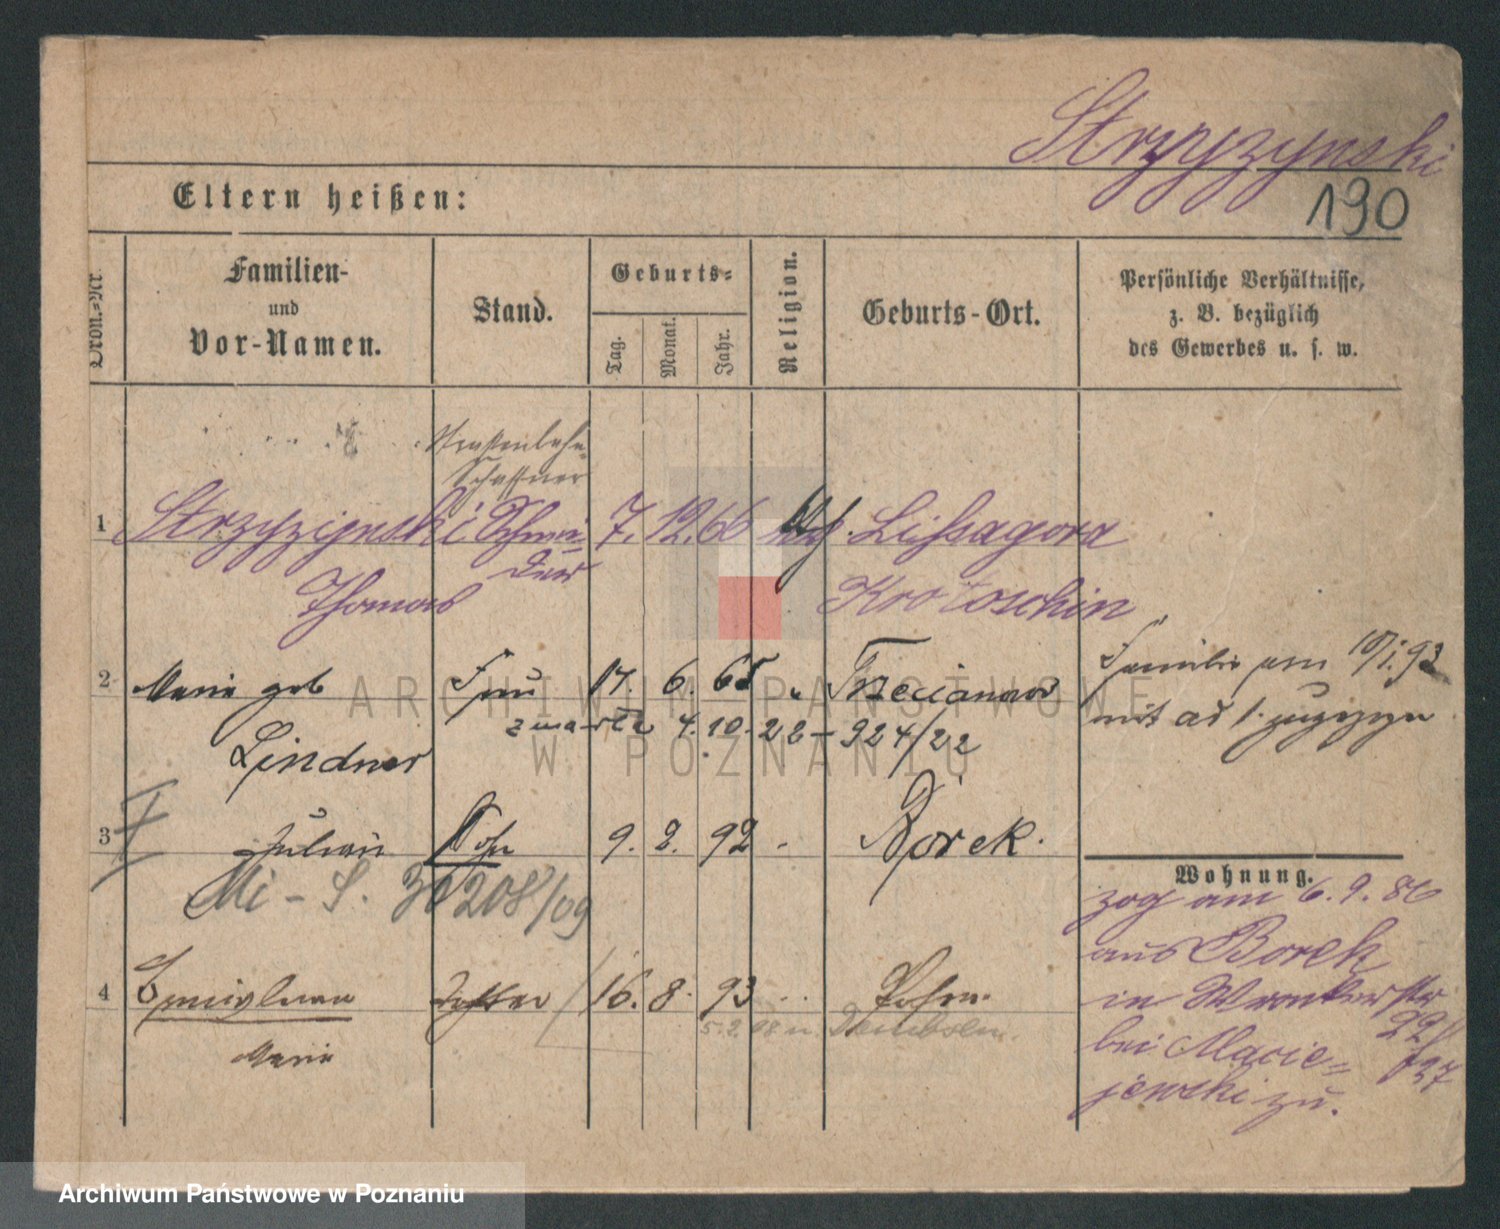 Strzyzynski
190
Eltern heißen:
Ordn.-Nr.
Familien-
und
Vor-Namen.
Stand.
Geburts-
Tag.
Monat.
Jahr.
Religion.
Geburts-Ort.
Persönliche Verhältnisse,
z. B. bezüglich
des Gewerbes u. s. w.
Straßenbahn-
Schaffner
1 Strzyzynski Schnei- 7. 12. 66 kath. Lissagora
der
Thomas Krotoschin
2 Marie geb Frau 17. 6. 65 " Trzecianow
Familie am 10/1. 93
mit ad 1. zugezogen
zmarła 4. 10. 22 – 924/22
Lindner
3 Julian Sohn 9. 2. 92 " Borek.
Mi - S. 30208/09
4 Marie Tochter 16. 8. 93 " Posen.
5.2.98 n. Dembsen.
Wohnung.
zog am 6. 9. 86
aus Borek
in Wronkerstr
22/
bei Macie-
jewski zu.
ARCHIWUM PAŃSTWOWE
W POZNANIU
Archiwum Państwowe w Poznaniu